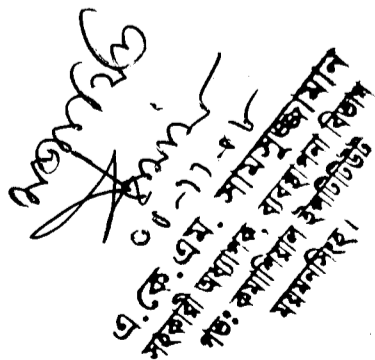 সত্যায়িত
০৪-১১-০৮
এ. কে. এম. সামসুজ্জামান
সহকারী অধ্যাপক, ব্যবস্থাপনা বিভাগ
গভঃ কমার্শিয়াল ইন্সটিটিউট
ময়মনসিংহ।